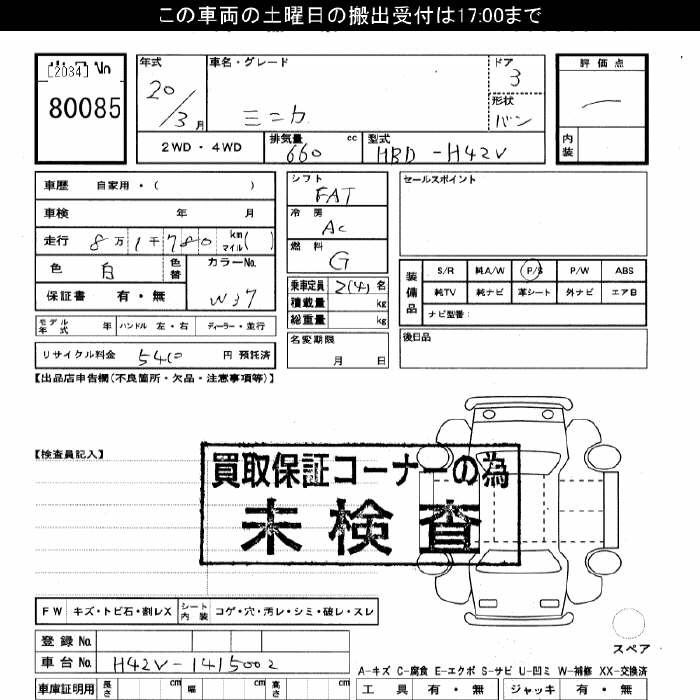 この車両の土曜日の搬出受付は17:00まで
[2034]
80085
年式
20/3月
車名・グレード
ミニカ
ドア
3
形状
バン
評価点
内装
2WD・4WD
排気量 660 cc
型式 HBD-H42V
車歴 自家用・( )
車検 年 月
走行 8万1千780 km マイル( )
色 白 色替
カラーNo. W37
保証書 有・無
モデル年式 年 ハンドル 左・右 ディーラー・並行
リサイクル料金 5410 円 預託済
シフト
FAT
冷房
AC
燃料
G
乗車定員 2(4)名
積載量 kg
総重量 kg
名変期限
月 日
セールスポイント
装備品
S/R 純A/W P/S P/W ABS
純TV 純ナビ 革シート 外ナビ エアB
ナビ型番:
後日品
【出品店申告欄(不良箇所・欠品・注意事項等)】
【検査員記入】
買取保証コーナーの為
未検査
FW キズ・トビ石・割レX
シート内装 コゲ・穴・汚レ・シミ・破レ・スレ
スペア
登録No.
車台No. H42V-1415002
A-キズ C-腐食 E-エクボ S-サビ U-凹ミ W-補修 XX-交換済
車庫証明用 長さ cm 幅 cm 高さ cm
工具 有・無 ジャッキ 有・無